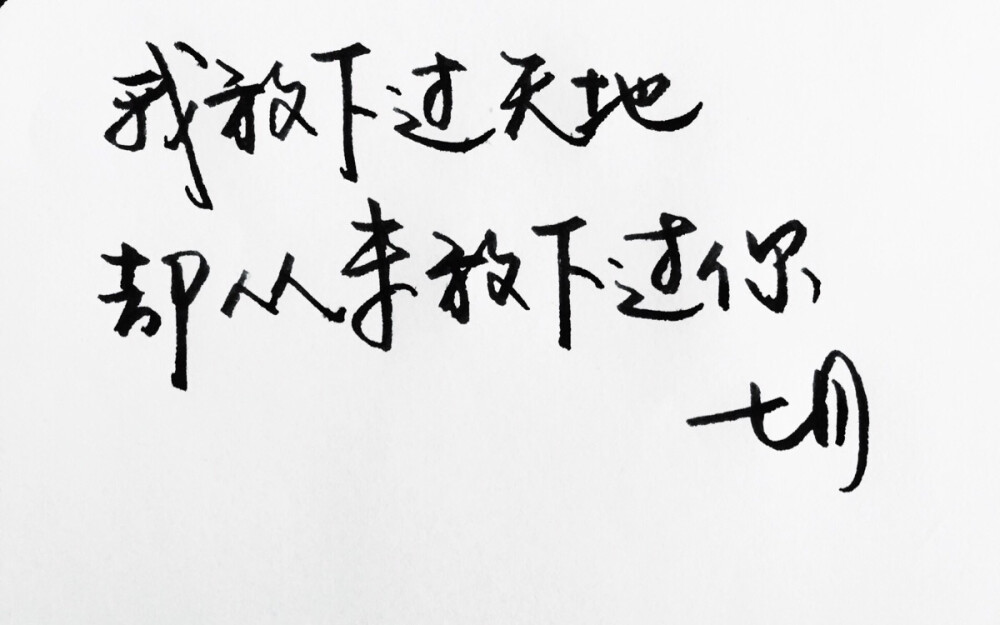 我放下过天地
却从来放下过你
七月